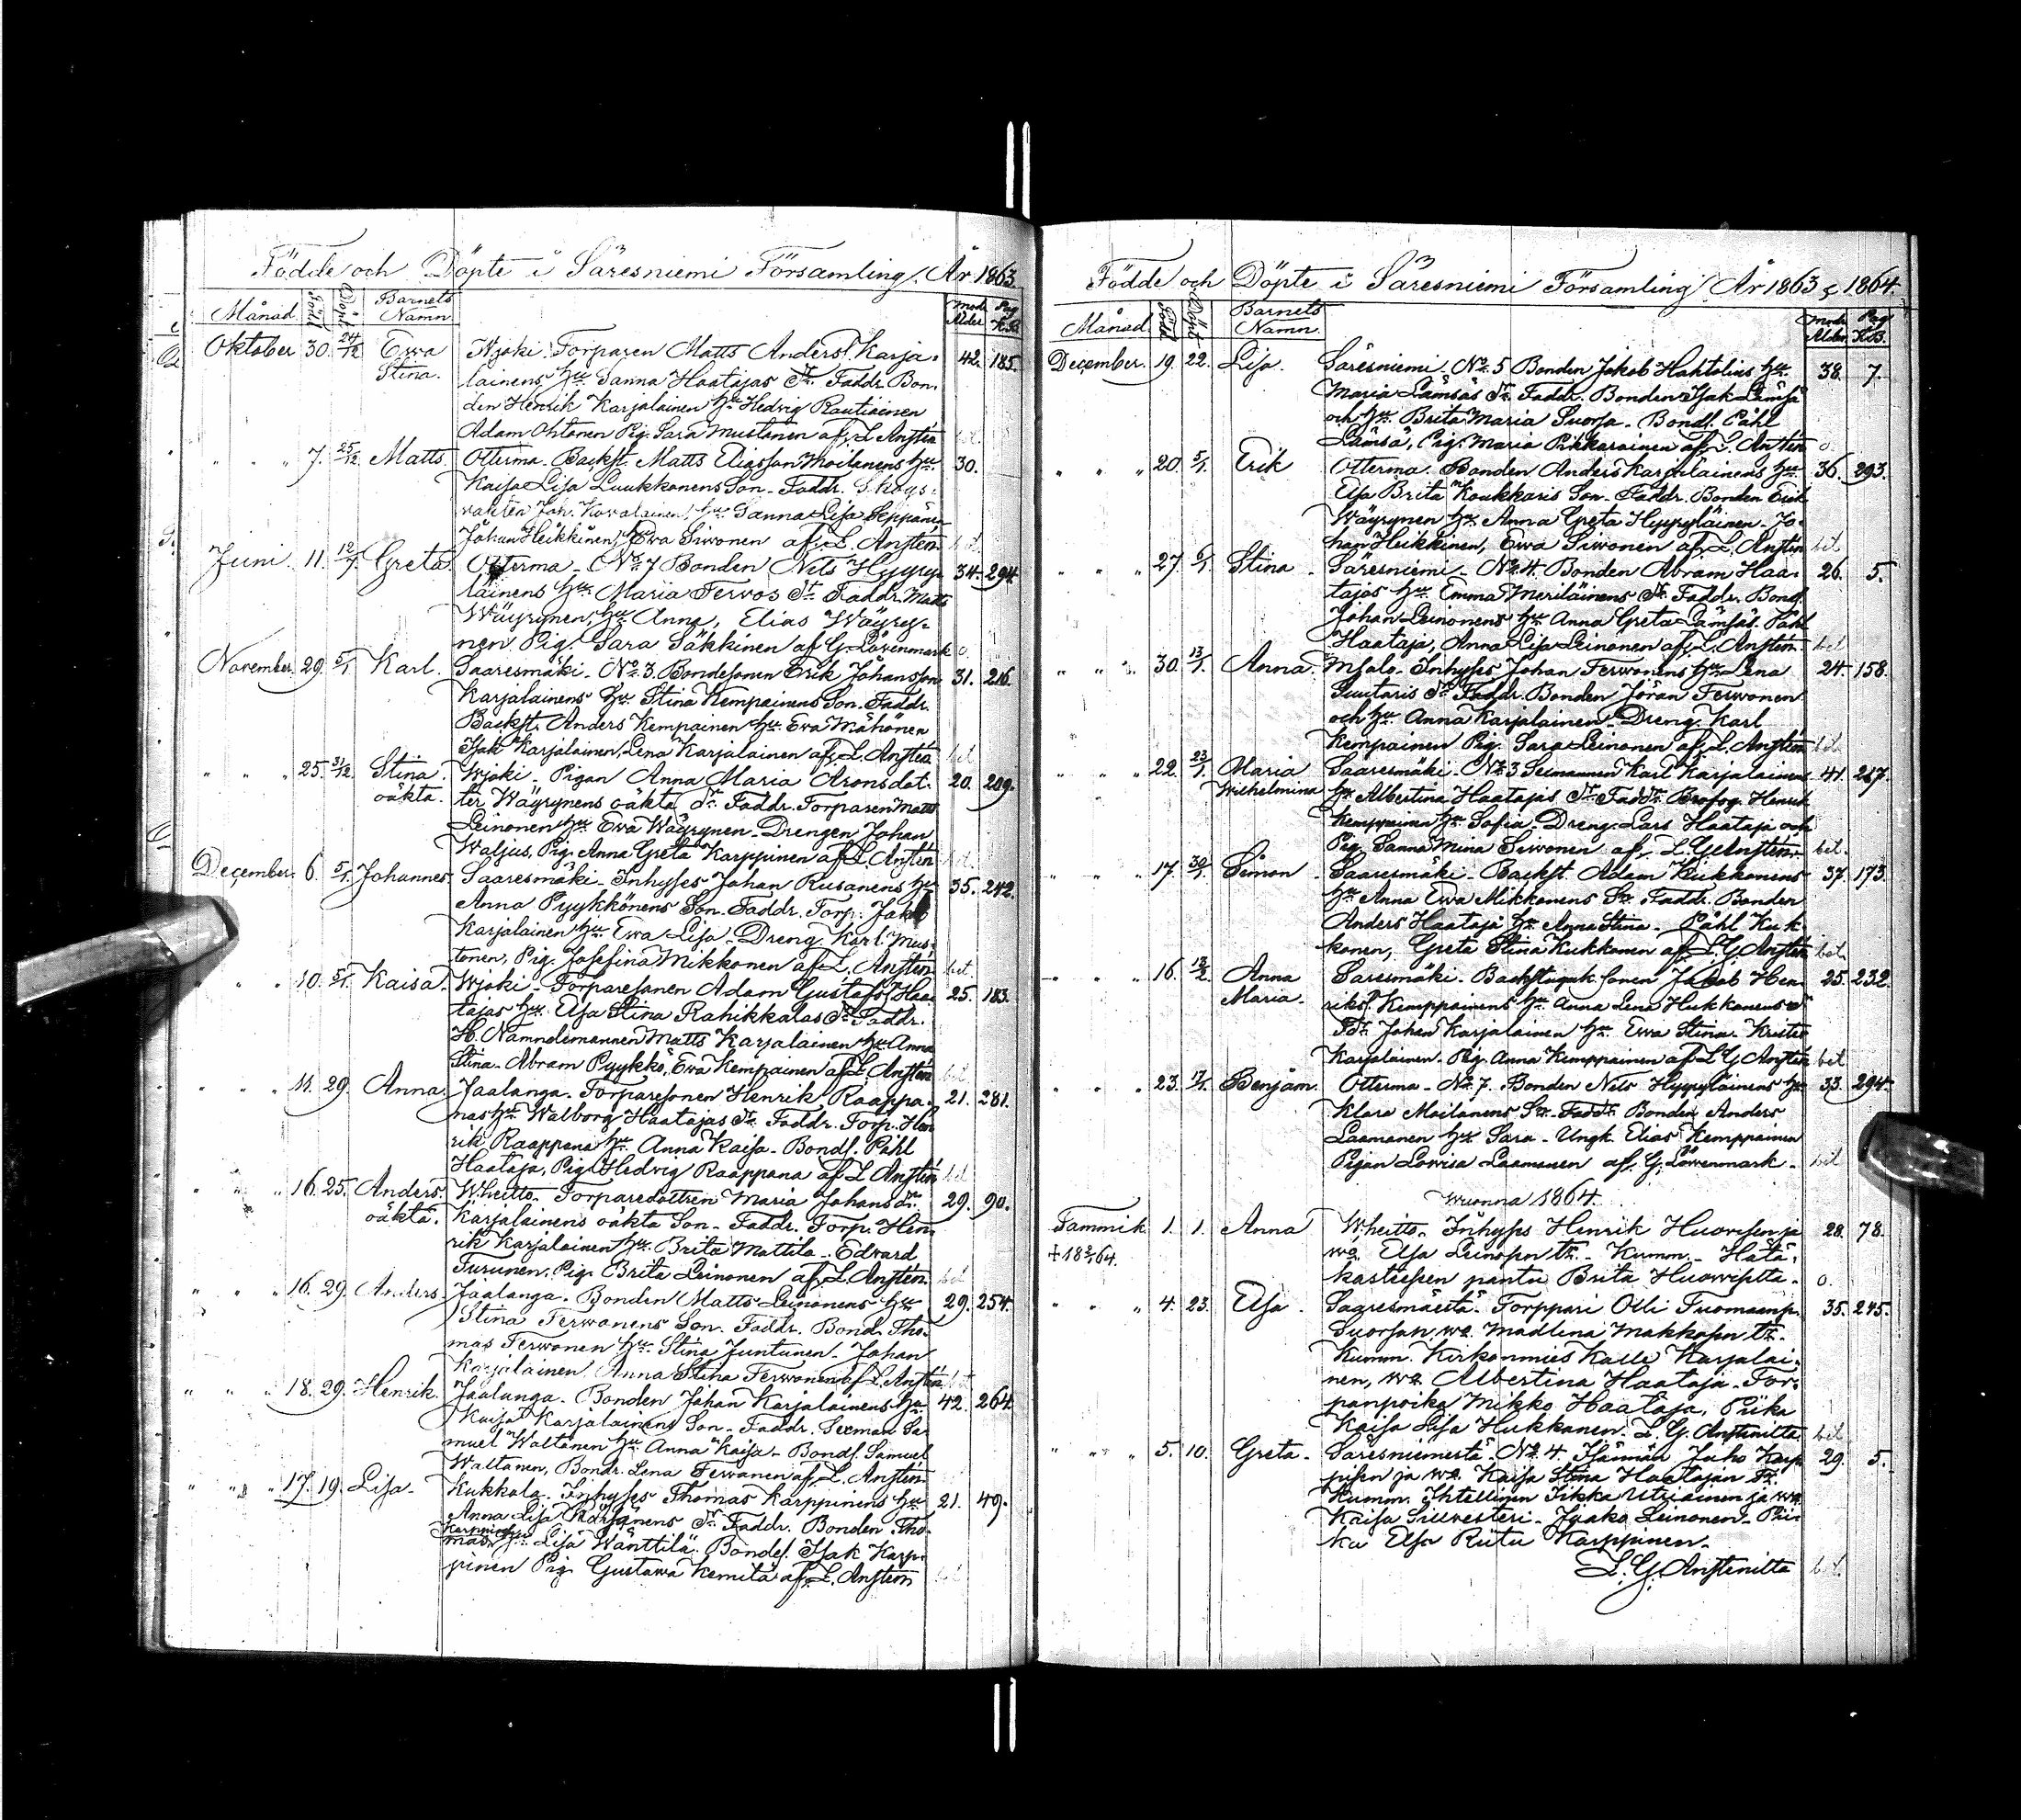 Födde och Döpte i Säresniemi Församling. År 1863.
Månad Född Döpt Barnets Namn Mod. Ålder Pag. K.B.
Oktober 30. 24/12 Ewa Wjoki. Torparen Matts Anderss. Karja- 42. 185.
Stina. lainens hu Sanna Haatajas Dr. Faddr. Bon-
den Henrik Karjalainen hu Hedvig Rautiainen
Adam Ohtonen Pig. Sara Mustonen af L. Anstén bet
" " 7. 25/12 Matts Otterma. Backst. Matts Eliasson Moilanens hu 30.
Kaisa Lisa Luukkonens Son. Faddr. Skogs-
vakten Joh. Kovalainen, hu Sanna Lisa Seppänen
Johan Heikkinen, Ewa Siwonen af L. Anstén. bet
Juni 11. 12/7 Greta Otterma. No 7 Bonden Nils Hyyry- 34. 294.
läinens hu Maria Terwos Dr. Faddr. Matts
Wäyrynen, hu Anna, Elias Wäyry-
nen Pig. Sara Säkkinen af G. Löwenmark o.
November 29. 5/1 Karl. Saaresmäki. No 3. Bondesonen Erik Johansson 31. 216.
Karjalainens hu Stina Kempainens Son. Faddr.
Backst. Anders Kempainen hu Ewa Mähönen
Isak Karjalainen, Lena Karjalainen af L. Anstén bet
" " 25. 31/12 Stina Wjoki. Pigan Anna Maria Aronsdot- 20. 209.
oäkta. ter Wäyrynens oäkta Dr. Faddr. Torparen Matts
Leinonen hu Ewa Wäyrynen. Drengen Johan
Waljus, Pig. Anna Greta Karppinen af L. Anstén bet.
December 6. 5/1 Johannes. Saaresmäki. Inhyses Johan Rusanens hu 35. 242.
Anna Pyykkönens Son. Faddr. Torp. Jakob
Karjalainen hu Ewa Lisa. Dreng. Karl Mus-
tonen, Pig. Josefina Mikkonen af L. Anstén. bet.
" " 10. 5/1 Kaisa. Wjoki. Torparesonen Adam Gustafs. Haa- 25. 183.
tajas hu Elsa Stina Rahikkalas Dr. Faddr.
H. Nämndemannen Matts Karjalainen hu Anna
Stina. Abram Pyykkö, Ewa Kempainen af L. Anstén bet
" " 11. 29. Anna. Jaalanga. Torparesonen Henrik Raappa- 21. 281.
nas hu Walborg Haatajas Dr. Faddr. Torp. Hen-
rik Raappana hu Anna Kaisa. Bonds. Påhl
Haataja, Pig. Hedvig Raappana af L. Anstén bet
" " 16. 25. Anders. Wheitto. Torparedottren Maria Johansdr. 29. 90.
oäkta. Karjalainens oäkta Son. Faddr. Torp. Hen-
rik Karjalainen hu Brita Mattila. Edvard
Turunen, Pig. Brita Leinonen af L. Anstén. bet
" " 16. 29. Anders Jaalanga. Bonden Matts Leinonens hu 29. 254.
Stina Terwonens Son. Faddr. Bond. Tho-
mas Terwonen hu Stina Juntunen. Johan
Karjalainen, Anna Stina Terwonen af L. Anstén bet
" " 18. 29. Henrik Jaalanga. Bonden Johan Karjalainens hu 42. 264
Kaisa Karjalainens Son. Faddr. Sexman Sa-
muel Waltanen hu Anna Kaisa. Bonds. Samuel
Waltanen, Bondr. Lena Terwonen af L. Anstén
" " 17. 19. Lisa. Kukkola. Inhyses Thomas Karppinens hu 21. 49.
Anna Lisa Dr. Faddr. Bonden Tho-
mas Karppinen hu Lisa Wänttilä. Bondes. Isak Karp-
pinen Pig. Gustawa Kemilä af L. Anstén bet
Födde och Döpte i Säresniemi Församling År 1863 & 1864.
Månad Född Döpt Barnets Namn. Mod. Ålder Pag. KB.
December. 19. 22. Lisa. Säresniemi. No 5 Bonden Jakob Hahtolins hu 38. 7.
Maria Lämsäs Dr. Faddr. Bonden Isak Lämsä
och hu Brita Maria Suorsa. Bonds. Påhl
Lämsä, Pig. Maria Pikkarainen af L. Anstén o
" " 20. 5/1 Erik Otterma. Bonden Anders Karjalainens hu 36. 293.
Elsa Brita Koukkaris Son. Faddr. Bonden Erik
Wäyrynen hu Anna Greta Hyyryläinen. Jo-
han Heikkinen, Ewa Siwonen af L. Anstén bet
" " 27. 6/1 Stina Säresniemi. No 4. Bonden Abram Haa- 26. 5.
tajas hu Emma Meriläinens Dr. Faddr. Bond.
Johan Leinonens hu Anna Greta Lämsäs. Påhl
Haataja, Anna Lisa Leinonen af L. Anstén. bet
" " 30. 13/1 Anna. Mjalo. Inhyses Johan Terwonens hu Lena 24. 158.
Luutaris Dr. Faddr. Bonden Jöran Terwonen
och hu Anna Karjalainen. Dreng. Karl
Kempainen Pig. Sara Leinonen af L. Anstén bet.
" " 22. 23/1 Maria Saaresmäki. No 3 Sexmannen Karl Karjalainens 41. 217.
Wilhelmina hu Albertina Haatajas Dr. Faddr. Brofog. Henrik
Kemppainen hu Sofia. Dreng. Lars Haataja och
Pig. Sanna Mina Siwonen af L. G. Anstén. bet.
" " 17. 30/1 Simon Saaresmäki. Backst. Adam Kukkonens 37. 173.
hu Anna Ewa Mikkonens Sn. Faddr. Bonden
Anders Haataja hu Anna Stina. Påhl Kuk-
konen, Greta Stina Kukkonen af L. G. Anstén bet.
" " 16. 13/2 Anna Saresmäki. Backstuguk. sonen Jakob Hen- 25. 232.
Maria. riks. Kemppainens hu Anna Lena Hukkanens Dr.
Fdr. Johan Karjalainen hu Ewa Stina. Krister
Karjalainen. Pig. Anna Kemppainen af L. G. Anstén bet
" " 23. 17/1 Benjam. Otterma. No 7. Bonden Nils Hyyryläinens hu 33. 294.
Klara Moilanens Sn. Faddr. Bonden Anders
Laamanen hu Sara. Ungk. Elias Kemppainen
Pigan Lovisa Laamanen af G. Löwenmark. bet
Wuonna 1864.
Tammik. 1. 1. Anna Wheitto. Inhyses Henrik Huovisen ja 28. 78.
+ 18 3/2 64. wa. Elsa Leinosen tr. Kumm. Hätä-
kasteesen pantu Brita Huowiselta. o.
" " 4. 23. Elsa. Saaresmäestä. Torppari Olli Tuomaanp. 35. 245.
Suorsan, wa. Madlena Makkosen tr.
Kumm. Kirkonmies Kalle Karjalai-
nen, wa. Albertina Haataja. Tor-
panpoika Mikko Haataja, Piika
Kaisa Lisa Hukkanen. L. G. Anstenilta bet
" " 5. 10. Greta. Säresniemestä. No 4. Isännän Juho Karp- 29. 5.
pisen ja wa. Kaisa Stina Haatajan Tr.
Kumm. Ihtellinen Iikka Utriainen ja wa
Kaisa Silvesteri. Jaako Leinonen. Pii-
ka Elsa Riitu Karppinen.
L. G. Anstenilta bet.